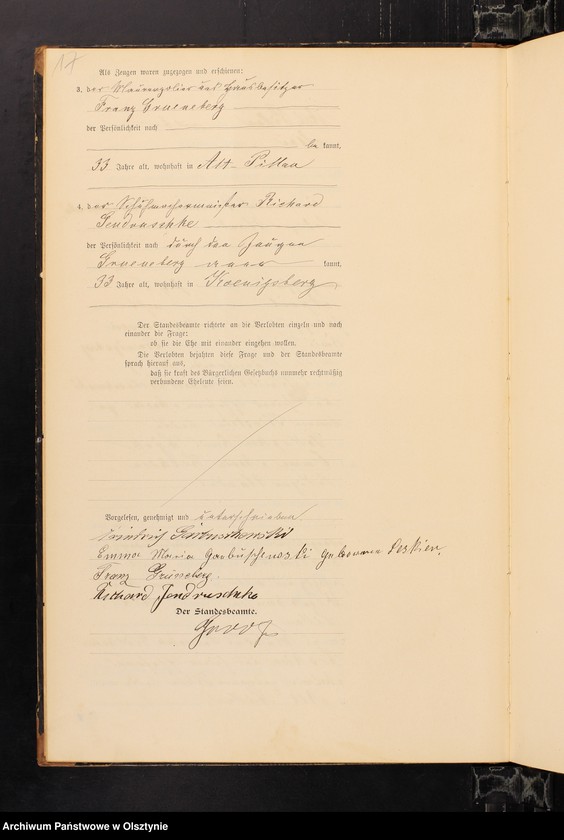 17
Als Zeugen waren zugezogen und erschienen:
3. der Maurerpolier und Hausbesitzer
Franz Grueneberg
der Persönlichkeit nach
be kannt,
33 Jahre alt, wohnhaft in Alt-Pillau
4. der Schuhmachermeister Richard
Jendruschke
der Persönlichkeit nach durch den Zeugen
Grueneberg kannt,
33 Jahre alt, wohnhaft in Koenigsberg
Der Standesbeamte richtete an die Verlobten einzeln und nach
einander die Frage:
ob sie die Ehe mit einander eingehen wollen.
Die Verlobten bejahten diese Frage und der Standesbeamte
sprach hierauf aus,
daß sie kraft des Bürgerlichen Gesetzbuchs nunmehr rechtmäßig
verbundene Eheleute seien.
Vorgelesen, genehmigt und unterschrieben
Friedrich
Emma Maria Garbuschewski geborene Deskien.
Franz Grüneberg.
Richard Jendruschke
Der Standesbeamte.
Archiwum Państwowe w Olsztynie